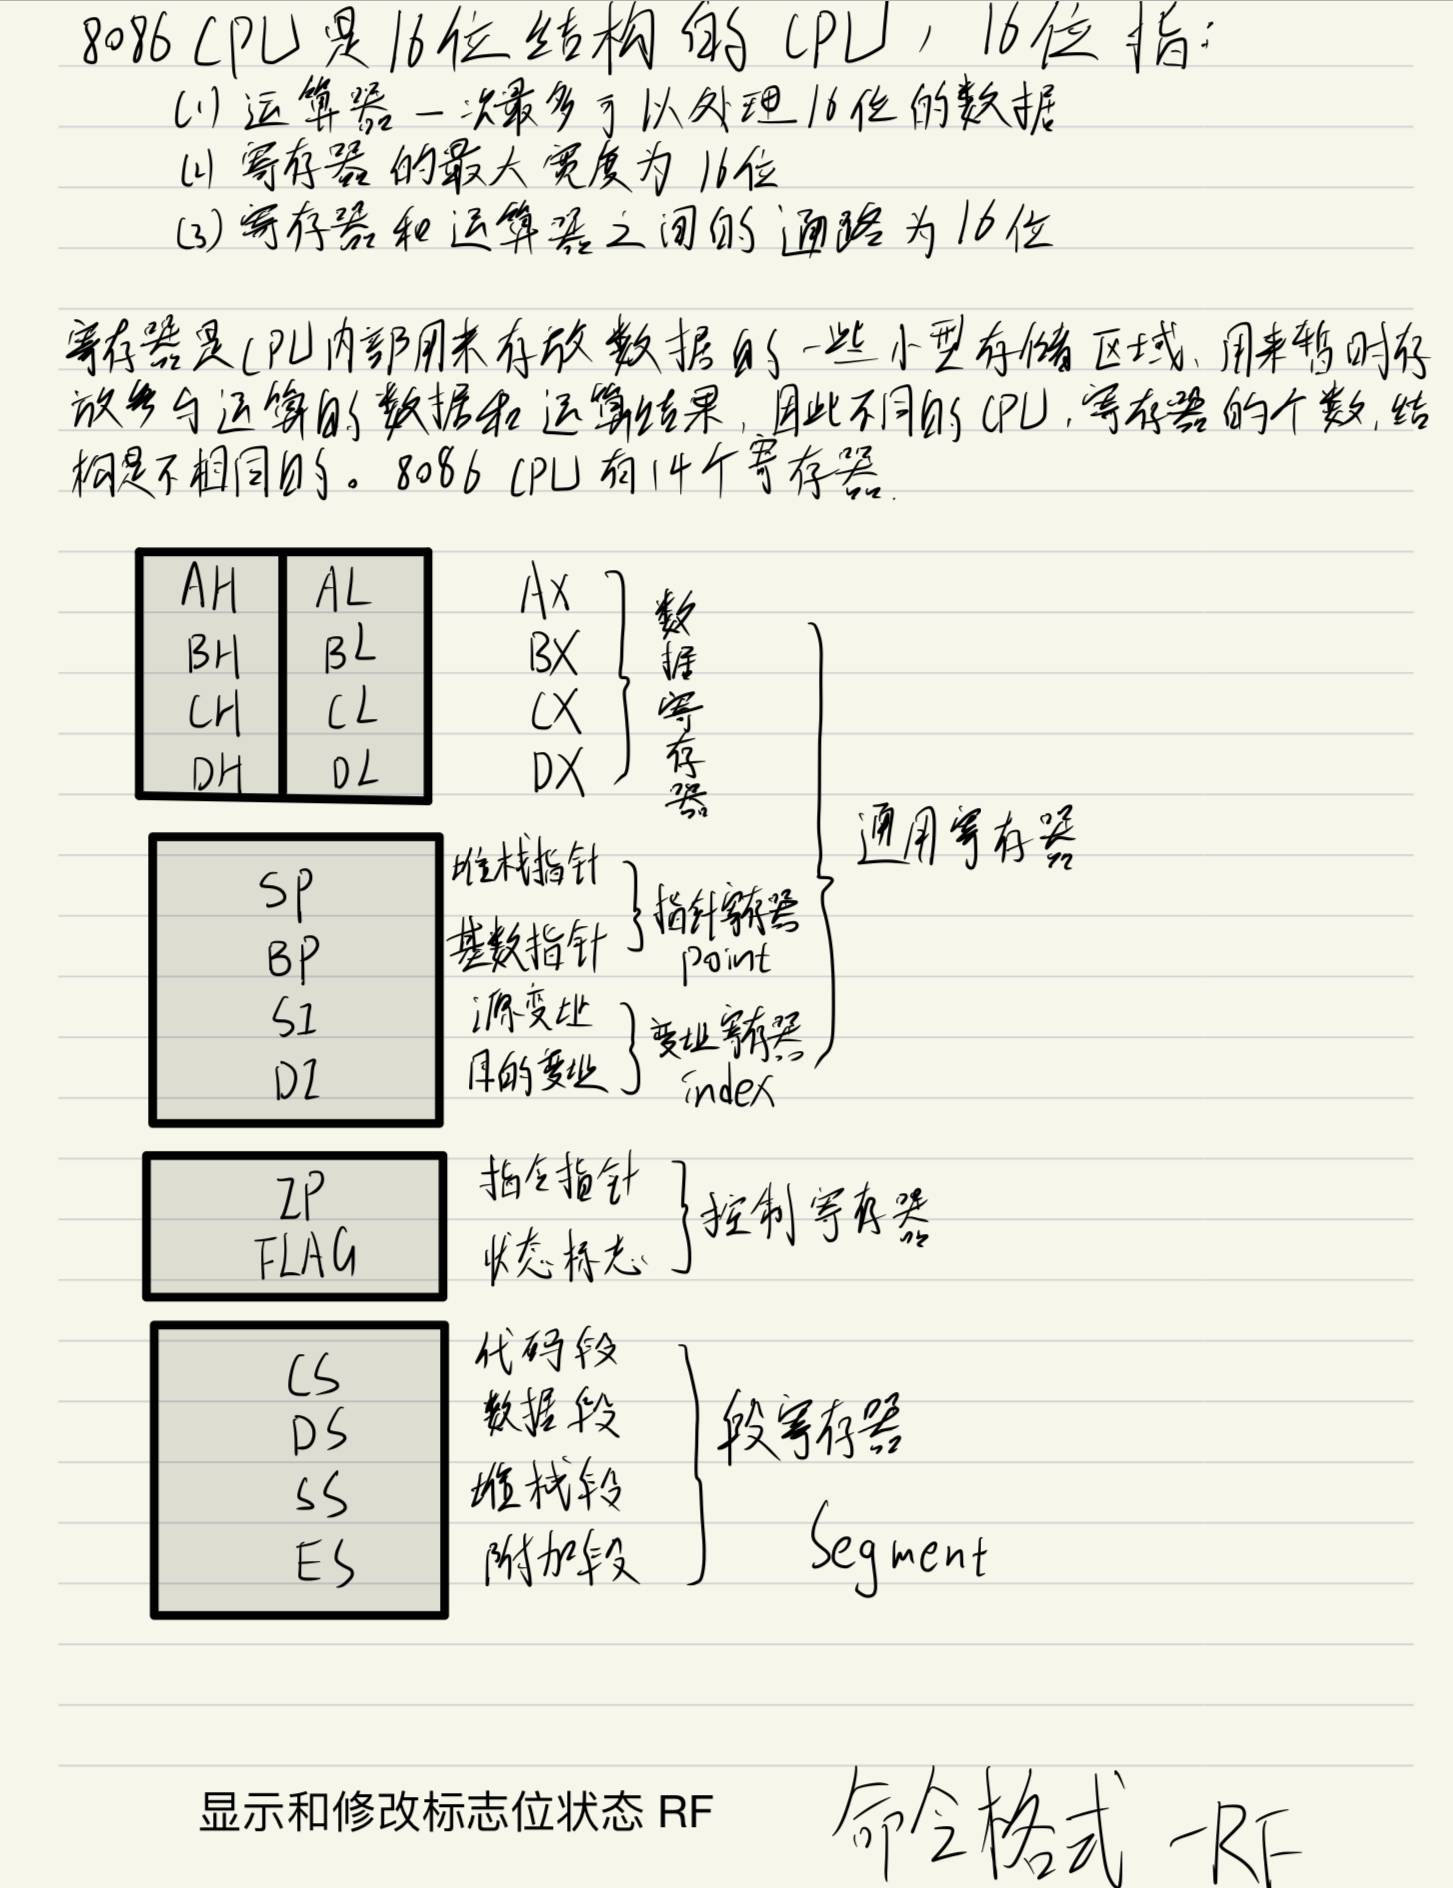 8086 CPU是16位结构的CPU，16位指：
(1) 运算器一次最多可以处理16位的数据
(2) 寄存器的最大宽度为16位
(3) 寄存器和运算器之间的通路为16位
寄存器是CPU内部用来存放数据的一些小型存储区域、用来暂时存
放参与运算的数据和运算结果，因此不同的CPU，寄存器的个数，结
构是不相同的。8086 CPU有14个寄存器.
AH AL AX
BH BL BX
CH CL CX
DH DL DX
数据寄存器
通用寄存器
SP 堆栈指针
BP 基数指针
指针寄存器
point
SI 源变址
DI 目的变址
变址寄存器
index
IP 指令指针
FLAG 状态标志
控制寄存器
CS 代码段
DS 数据段
SS 堆栈段
ES 附加段
段寄存器
Segment
显示和修改标志位状态 RF
命令格式 -RF